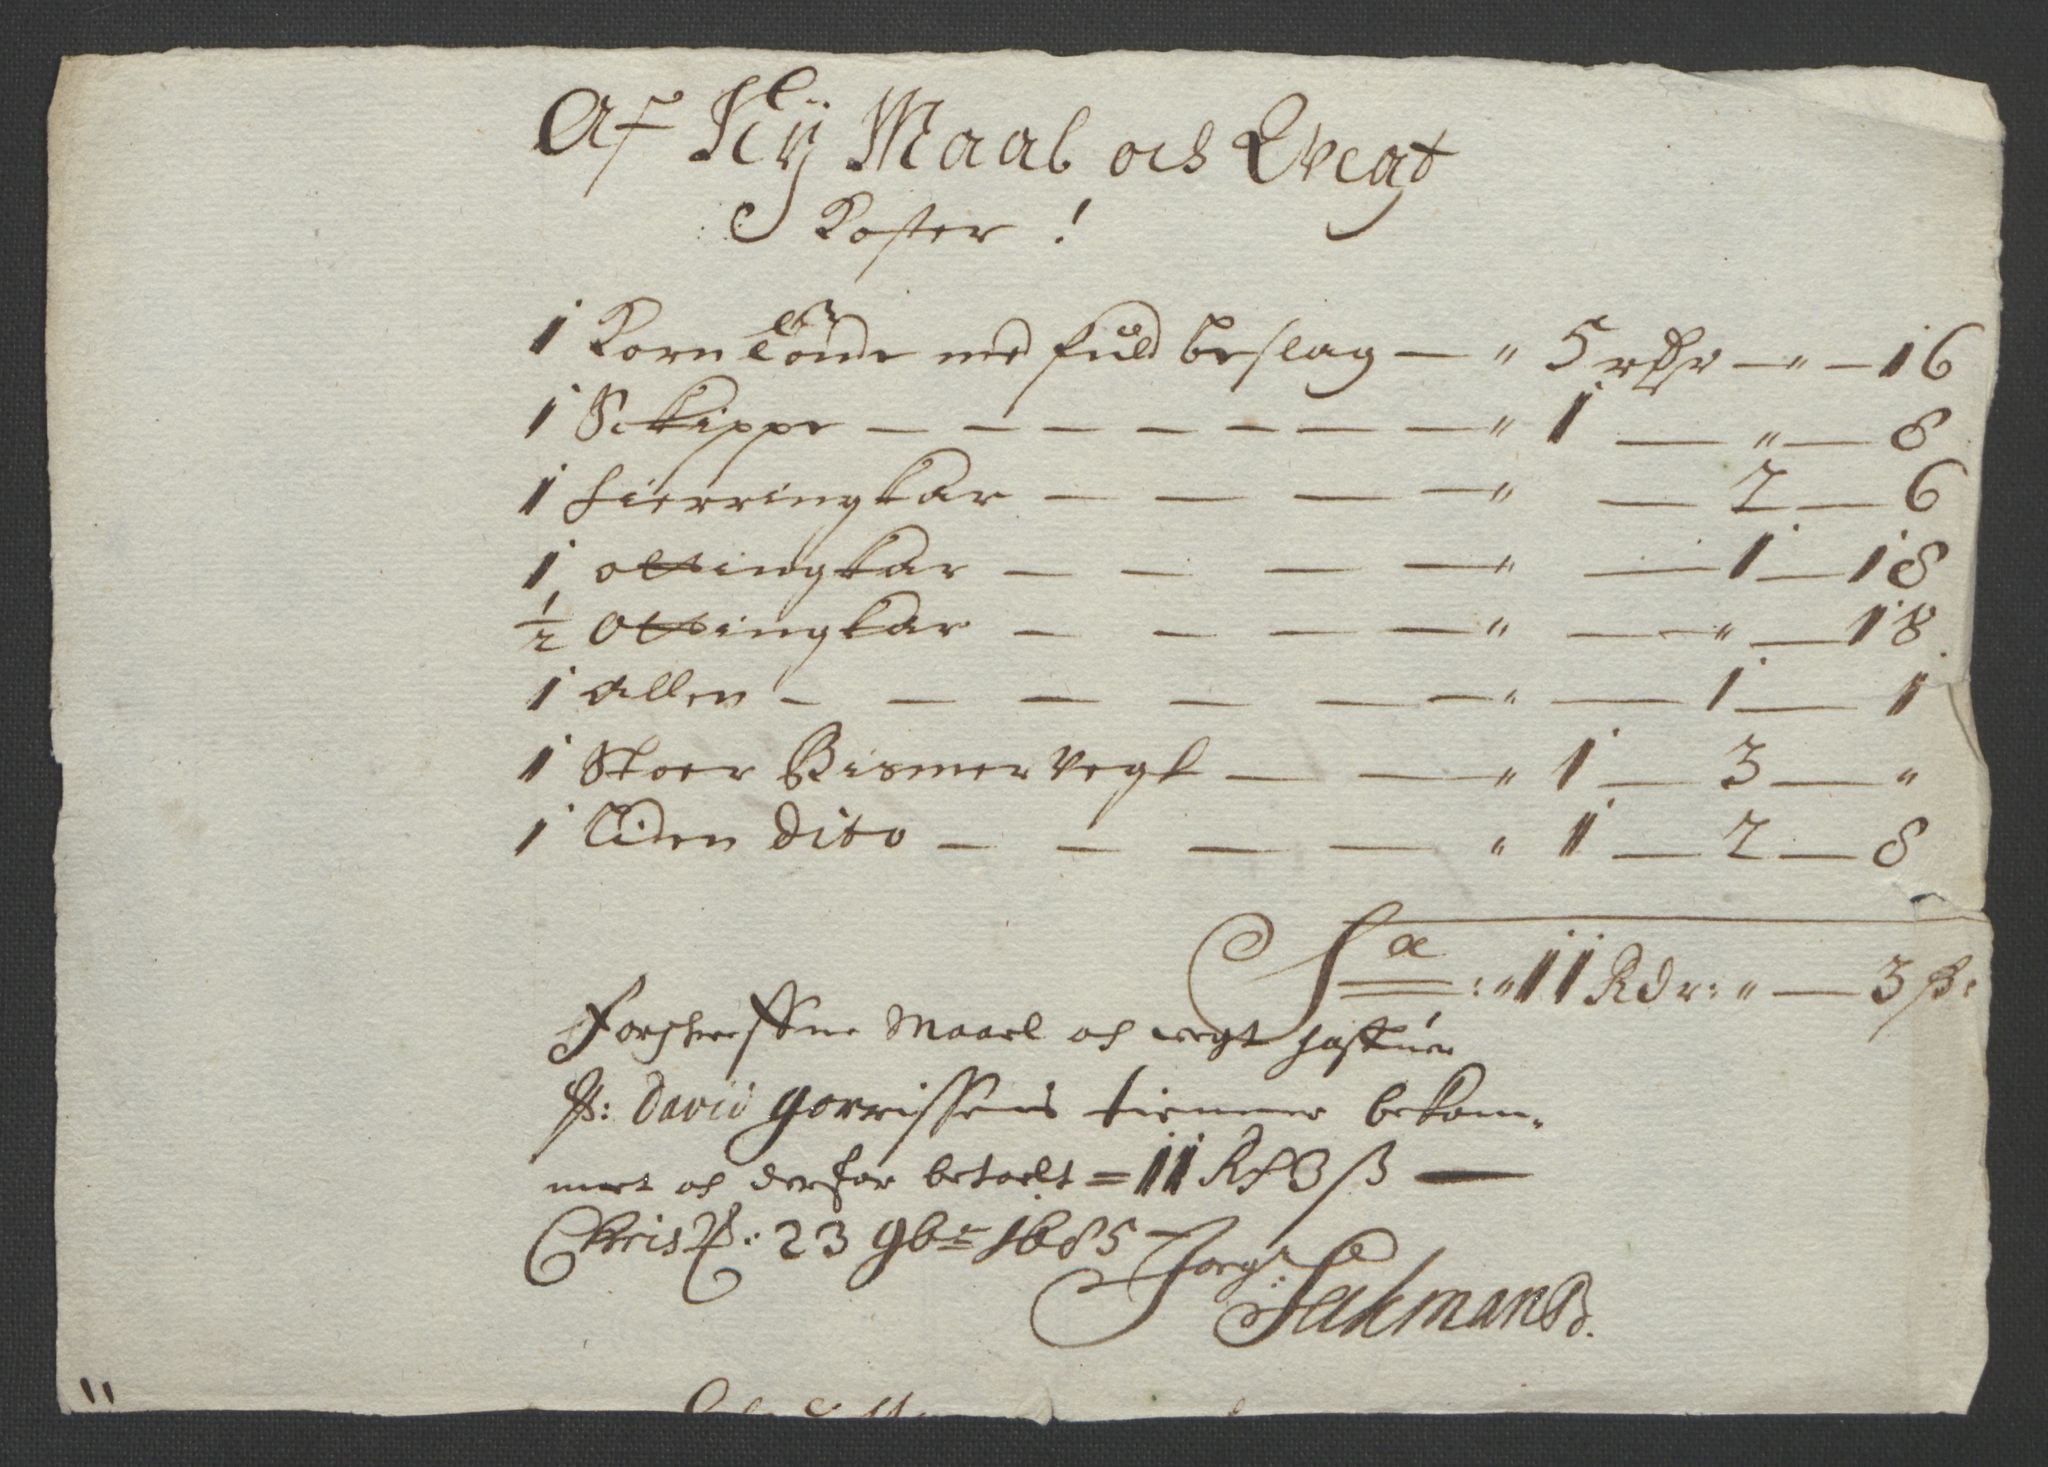 Af Nÿ Maal och Vegt
Koster !
1 Korn Tönde med fuld beslag — " 5 rdr — " — 16
1 Schippe — " 1 — " — 8
1 fierringkar — " — 2 — 6
1 ottingkar — " — 1 — 18
1/2 Ottingkar — " — " — 18
1 Allen — " — 1 — 1
1 Stoer Bismer vegt — " 1 — 3 — "
1 Liden dito — " 1 — 2 — 8
Sa : " 11 Rdr: " — 3 ß:
Forschrefne Maael och vegt hafuer
Sr: David Gorrissens tienner bekom-
met och derfor betaelt = 11 Rd 3 ß —
Christ: 23 9br 1685
Jørg: Sechmand.
11